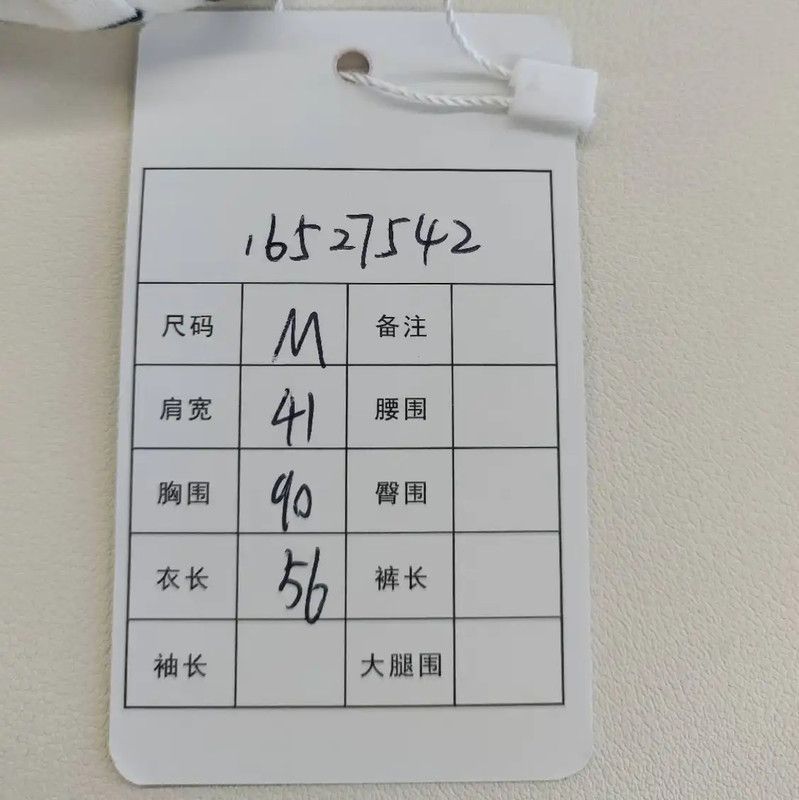 16527542
尺码 M 备注
肩宽 41 腰围
胸围 90 臀围
衣长 56 裤长
袖长 大腿围